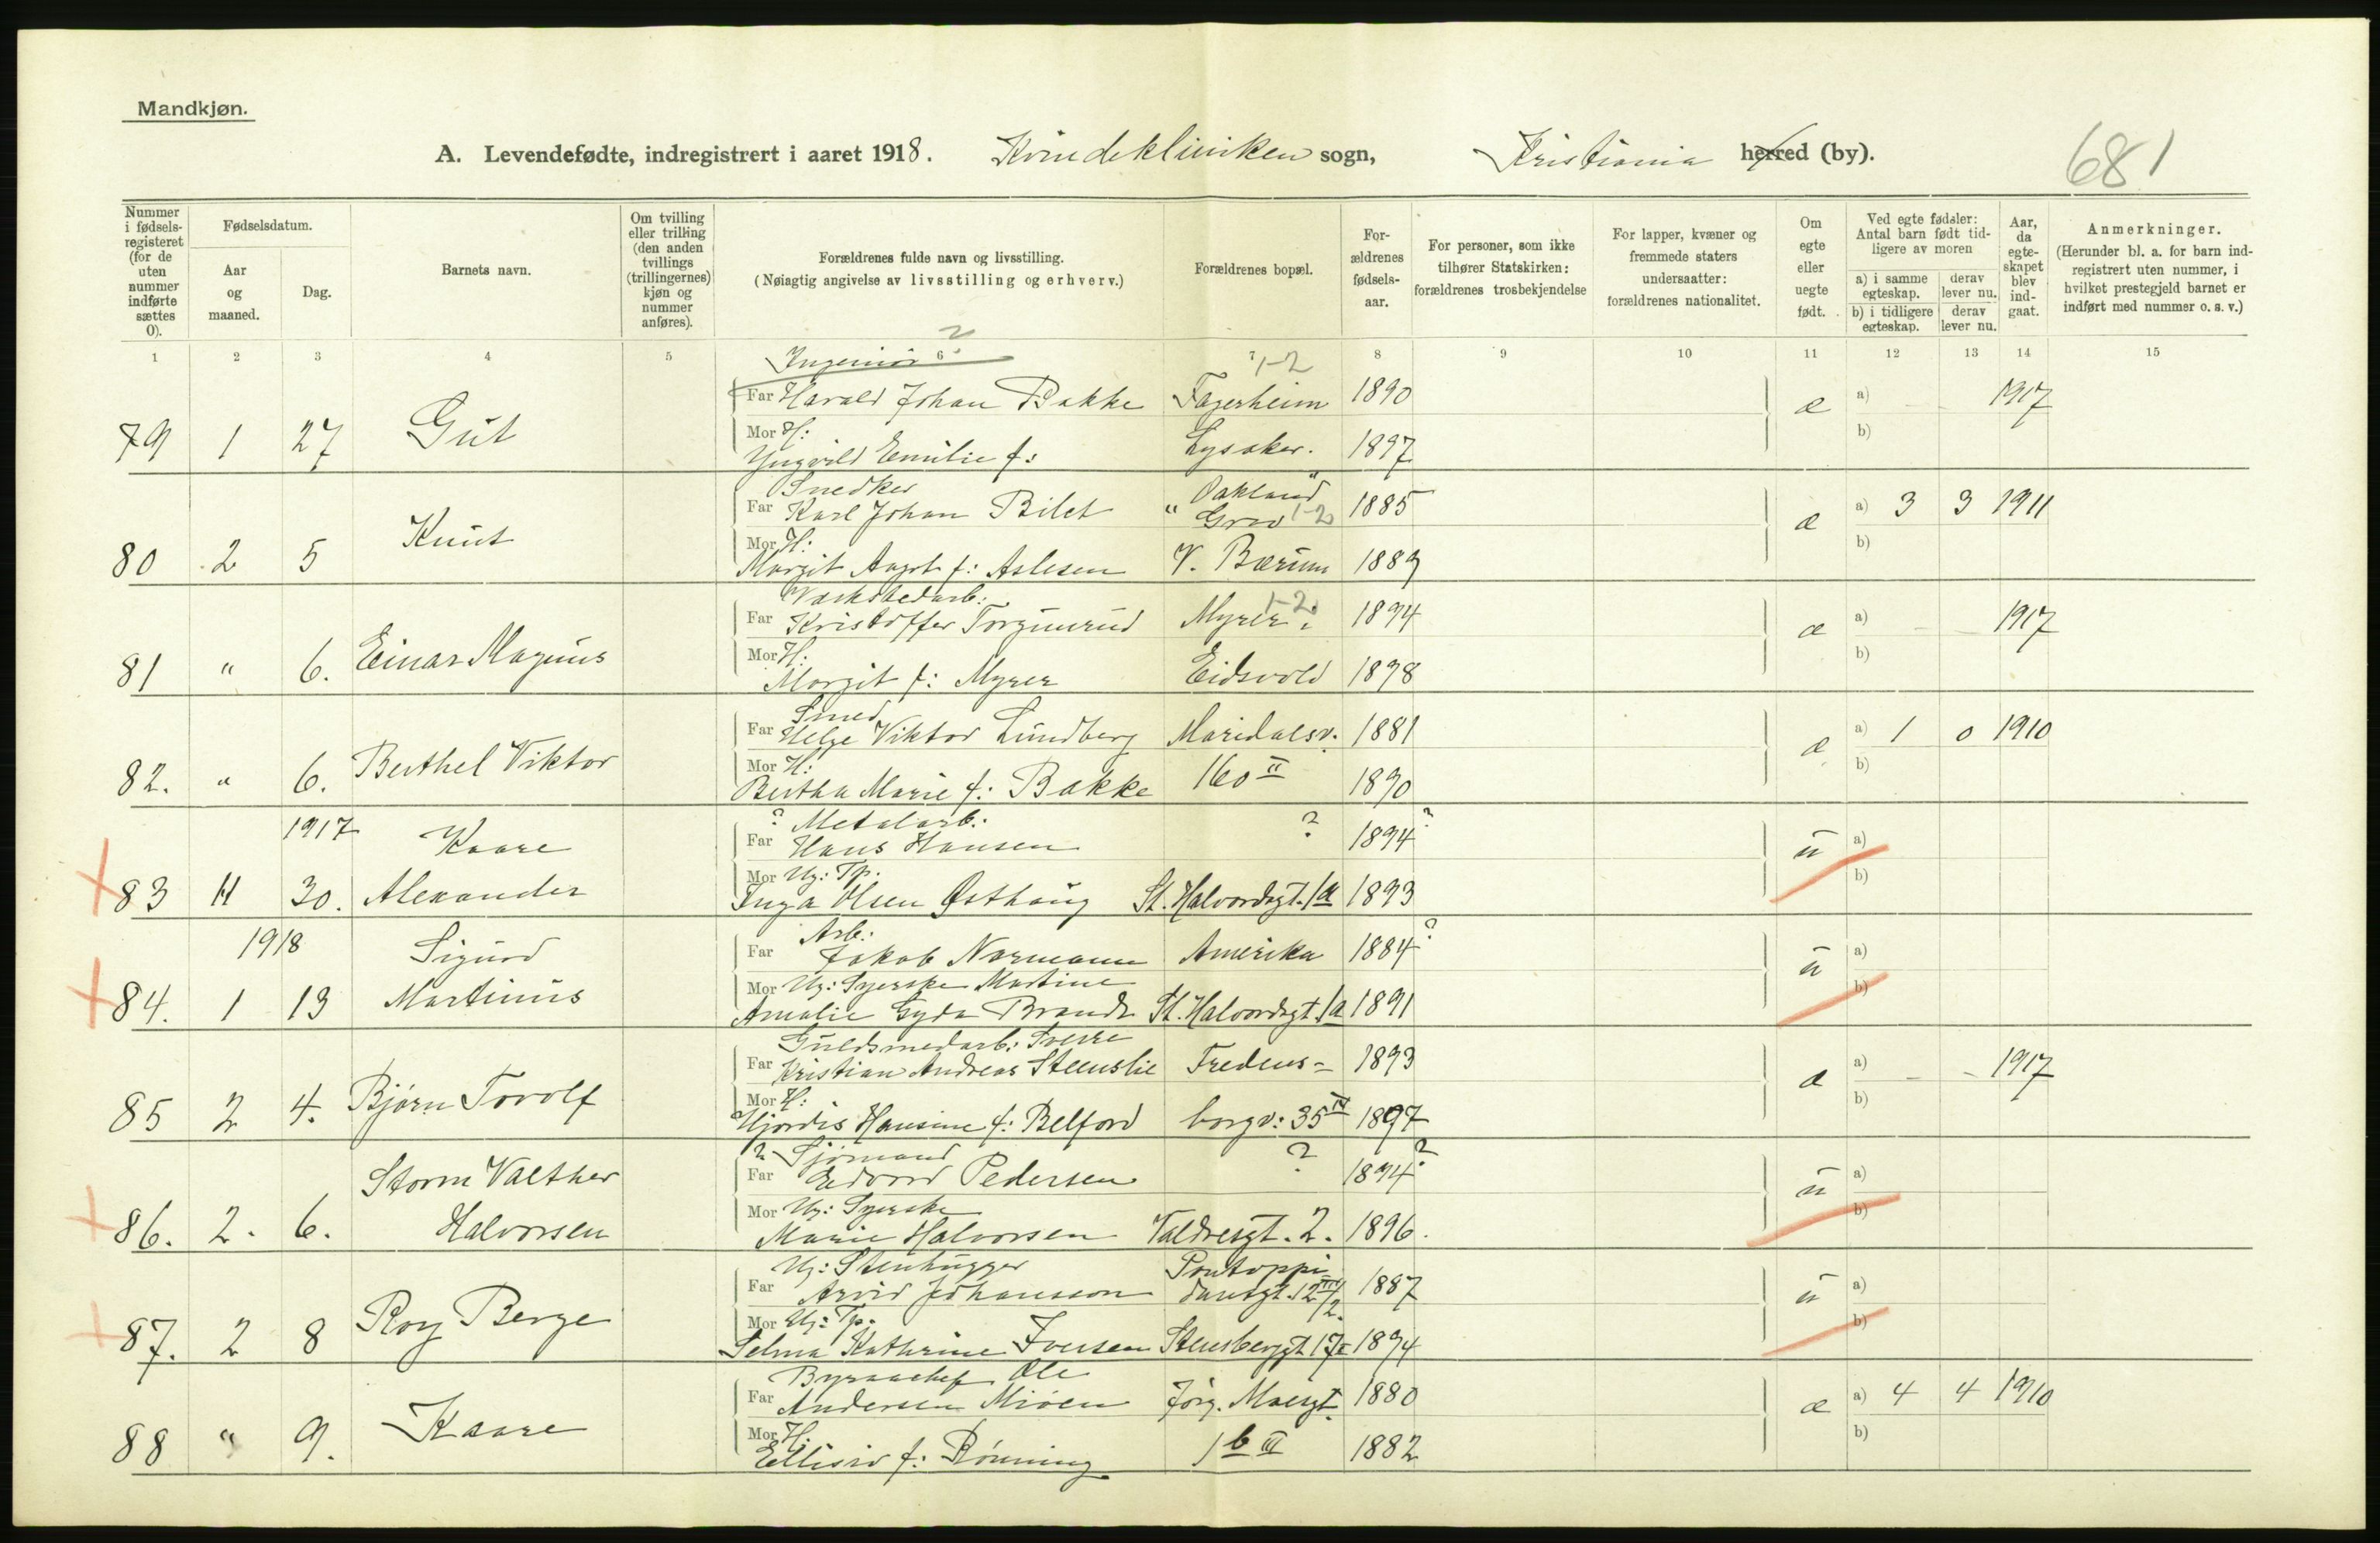 Mandkjøn.
A. Levendefødte, indregistrert i aaret 1918. Kvindekliniken sogn, Kristiania herred (by). 681
Nummer i fødselsregisteret (for de uten nummer indførte sættes 0).
Fødselsdatum.
Aar og maaned.
Dag.
Barnets navn.
Om tvilling eller trilling (den anden tvillings (trillingernes) kjøn og nummer anføres).
Forældrenes fulde navn og livsstilling.
(Nøiagtig angivelse av livsstilling og erhverv.)
Forældrenes bopæl.
Forældrenes fødselsaar.
For personer, som ikke tilhører Statskirken: forældrenes trosbekjendelse
For lapper, kvæner og fremmede staters undersaatter: forældrenes nationalitet.
Om egte eller uegte født.
Ved egte fødsler: Antal barn født tidligere av moren
a) i samme egteskap. derav lever nu.
b) i tidligere egteskap. derav lever nu.
Aar, da egteskapet blev indgaat.
Anmerkninger.
(Herunder bl. a. for barn indregistrert uten nummer, i hvilket prestegjeld barnet er indført med nummer o. s. v.)
1 2 3 4 5 6 7 8 9 10 11 12 13 14 15
Ingeniør ? 1-2
Far Harald Johan Bakke Fagerheim 1890 æ a) - - 1917
79 1 27 Gut
Mor H: b)
Yngvild Emilie f: Lysaker. 1897
Snedker "Oakland"
Far Karl Johan Bilet " Grav 1-2 1885 æ a) 3 3 1911
80 2 5 Knut
Mor H: b)
Margit Aagot f: Aslesen V. Bærum 1889
Værkstedarb: 1-2
Far Kristoffer Torgunrud Myrer. 1894 æ a) - - 1917
81 " 6. Einar Magnus
Mor H: b)
Margit f: Myrer Eidsvold 1898
Smed
Far Helge Viktor Lundberg Maridalsv. 1881 æ a) 1 0 1910
82. " 6. Berthel Viktor
Mor H: b)
Bertha Marie f: Bakke 160 II 1890
1917 Kaare
? Metalarb: ?
Far Hans Hansen 1894? u a)
83 11 30. Alexander
Mor Ug: Tp. b)
Inga Olsen Østhaug St. Halvardsgt. 1a 1893
1918 Sigurd
Arb:
Far Jakob Normann Amerika 1884? u a)
84. 1 13 Martinius
Mor Ug: Syerske Martine b)
Amalie Gyda Brandt St. Halvardsgt. 1a 1891
Guldsmedarb: Sverre
Far Kristian Andreas Steenslie Fredens- 1893 æ a) - - 1917
85 2 4. Bjørn Torolf
Mor H: b)
Hjørdis Hansine f: Belford borgv: 35 IV 1897
? Sjømand ?
Storm Valther
Far Edvard Pedersen 1894? u a)
86. 2. 6. Halvorsen
Mor Ug: Syerske b)
Marie Halvorsen Valdresgt. 2. 1896.
Ug: Stenhugger Pontoppi
Far Arvid Johansson dansgt. 12 III/2. 1887 u a)
87. 2 8 Roy Berge
Mor Ug: Tp. b)
Selma Kathrine Iversen Stensberggt 17 I 1894
Byraachef Ole
Far Andersen Miöen Jørg. Moesgt. 1880 æ a) 4 4 1910
88 " 9. Kaare
Mor H. b)
Ellisiv f: Rönning 1 b III 1882